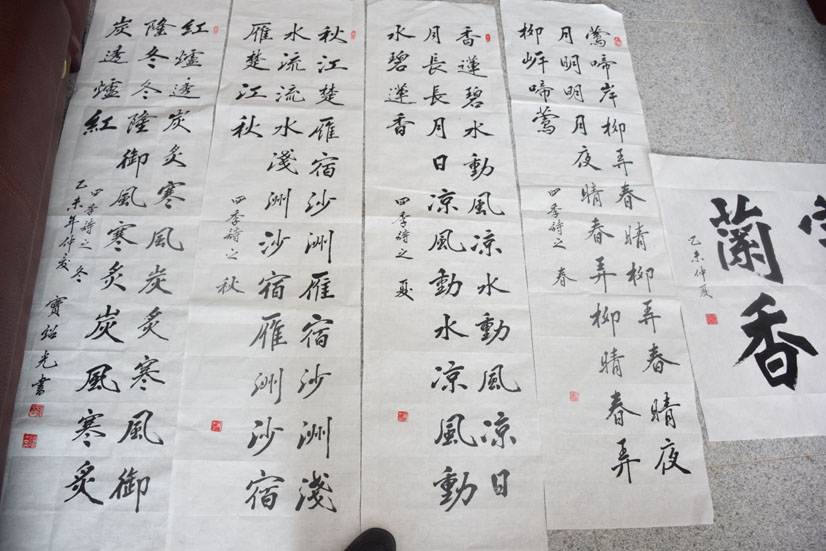 蘭香
乙未仲夏
鶯啼岸柳弄春晴柳弄春晴夜
月明明月夜晴春弄柳晴春弄
柳岸啼鶯
四季詩之春
香蓮碧水動風凉水動風凉日
月長長月日凉風動水凉風動
水碧蓮香
四季詩之夏
秋江楚雁宿沙洲雁宿沙洲淺
水流流水淺洲沙宿雁洲沙宿
雁楚江秋
四季詩之秋
紅爐透炭炙寒風炭炙寒風御
隆冬冬隆御風寒炙炭風寒炙
炭透爐紅
四季詩之冬
乙未年仲夏 光書